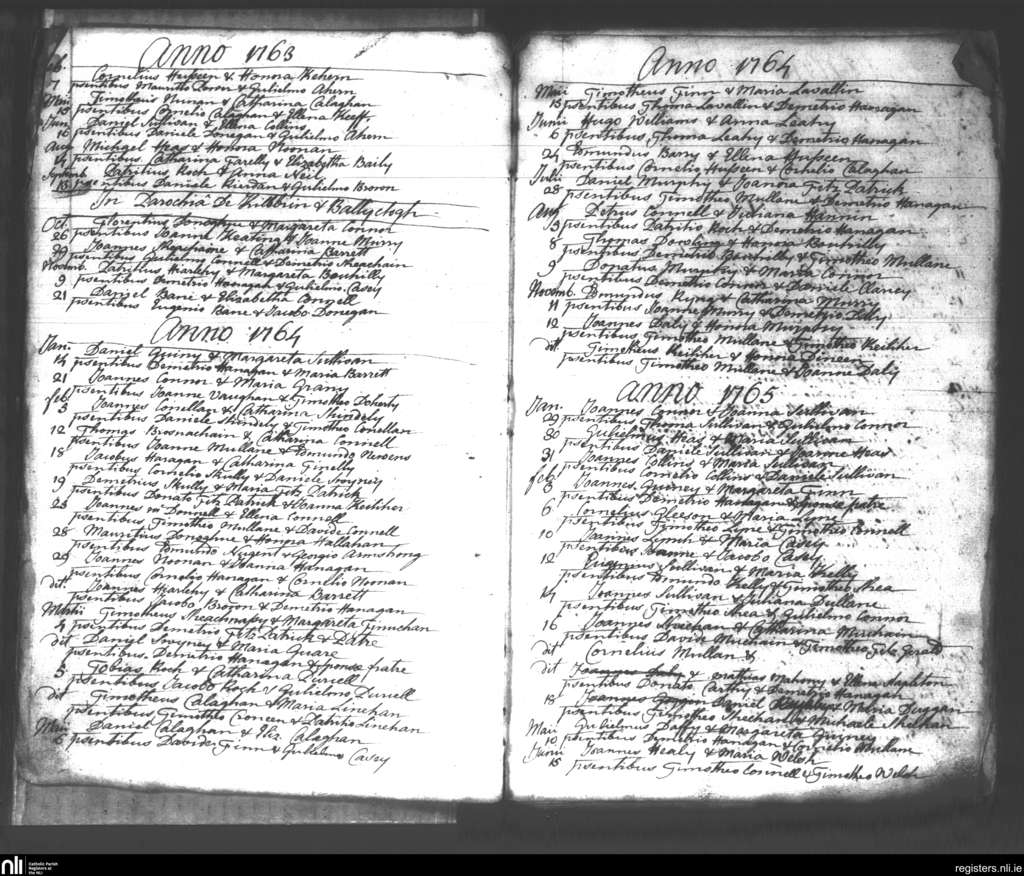 Anno 1763
feb. Cornelius Husseen & Honora Kehem
7 psentibus Mauritio Doron & Gulielmo Ahern
Maii Timotheus Nunan & Catharina Calaghan
15 psentibus Cornelio Calaghan & Ellena Keeff
Junii Daniel Sullivan & Ellena Collins
16 psentibus Daniele Donegan & Gulielmo Ahern
Aug Michael Heas & Honora Noonan
14 psentibus Catharina Farelly & Elizabetha Baily
Septemb. Patritius Roch & Anna Neil
15 psentibus Daniele Riordan & Gulielmo Broron
In Parochia De Kilbrin & Ballyclogh
Oct. Florentius Donoghue & Margareta Connor
26 psentibus Joanne Keating & Joanne Murry
Joannes & Catharina Barrett
29 psentibus Gulielmo Connell & Demetrio Meachain
Novemb. Patritius Hiarlehy & Margareta Bouhilly
9 psentibus Demetrio Hanagan & Gulielmo Casey
21 Daniel Bane & Elizabetha Connell
psentibus Eugenio Bane & Jacobo Donegan
Anno 1764
Jan. Daniel Quiny & Margareta Sullivan
14 psentibus Demetrio Hanagan & Maria Barrett
21 Joannes Connor & Maria Grany
psentibus Joanne Vaughan & Timotheo Doherty
feb. Joannes Conellan & Catharina Skindely
3 psentibus Daniele Skindely & Timotheo Conellan
12 Thomas Brosnachain & Catharina Connell
psentibus Joanne Mullane & Edmundo Newens
18 Jacobus Haragan & Catharina Finelly
psentibus Cornelio Skully & Daniele Sroyney
19 Demetrius Skully & Maria Fitz Patrick
psentibus Donato Fitz Patrick & Joanna Keelihir
25 Joannes m Donnell & Ellena Connell
psentibus Timotheo Mullane & Davide Connell
28 Mauritius Donoghue & Honora Hallahan
psentibus Edmundo Nugent & Georgio Armshong
29 Joannes Noonan & Joanna Hanagan
psentibus Cornelio Hanagan & Cornelio Noonan
ditt Joannes Hiarlehy & Catharina Barrett
psentibus Jacobo Broron & Demetrio Hanagan
Martii Timotheus Meachnaby & Margareta Finuchan
4 psentibus Demetrio Fitz Patrick & Patre
dit Daniel Sovyney & Maria Guare
psentibus Demetrio Hanagan & sponsæ fratre
5 Tobias Roch & Catharina Dureell
psentibus Jacobo Roch & Gulielmo Dureell
dit Timotheus Calaghan & Maria Linehan
psentibus Timotheo Coneen & Patritio Linehan
Maii Daniel Calaghan & Eliz Calaghan
6 psentibus Davide Finn & Gulielmo Casey
Anno 1764
Maii Timotheus Finn & Maria Lavallin
13 psentibus Thoma Lavallin & Demetrio Hanagan
Junii Hugo Williams & Anna Leahy
6 psentibus Thoma Leahy & Demetrio Hanagan
24 Edmundus Barry & Ellena Husseen
psentibus Cornelio Husseen & Cornelio Calaghan
Julii Daniel Murphy & Joanna Fitz Patrick
28 psentibus Timotheo Mullane & Demetrio Hanagan
Aug Petrus Connell & Juliana Hannin
13 psentibus Patritio Roch & Demetrio Hanagan
8 Thomas Dowling & Honora Bouhilly
psentibus Demetrio Bouhilly & Timotheo Mullane
9 Donatus Murphy & Maria Connor
psentibus Demetrio Connor & Daniele Clancy
Novemb. Edmundus Ryng & Catharina Murry
11 psentibus Joanne Murry & Demetrio Lilly
12 Joannes Daly & Honora Murphy
psentibus Timotheo Mullane & Timotheo Keilihir
dit Timotheus Keilihir & Honora Dineen
psentibus Timotheo Mullane & Joanne Daly
Anno 1765
Jan. Joannes Connor & Joanna Sullivan
29 psentibus Thoma Sullivan & Gulielmo Connor
30 Gulielmus Heas & Maria Sullivan
psentibus Daniele Sullivan & Joanne Heas
31 Joannes Collins & Maria Sullivan
psentibus Cornelio Collins & Daniele Sullivan
feb. Joannes Guiney & Margareta Finn
3 psentibus Demetrio Hanagan & sponsæ fratre
6 Cornelius Gleeson & Maria Lyne
psentibus Timotheo Lyne & Timotheo Connell
10 Joannes Lynch & Maria Casey
psentibus Joanne & Jacobo Casey
12 Eugenius Sullivan & Maria Kelly
psentibus Edmundo Kelly & Timotheo Shea
14 Joannes Sullivan & Juliana Dullane
psentibus Timotheo Shea & Gulielmo Connor
16 Joannes Sheehan & Catharina Murchain
psentibus Davide Murchain & Timotheo Fitz Gerald
dit Cornelius Mullan &
dit & Mathias Mahony & Ellena Stapleton
psentibus Donato Carthy & Demetrio Hanagan
18 Daniel & Maria Duggan
psentibus Timotheo Sheehan & Michaele Sheehan
Maii Gulielmus Daffy & Margareta Guiney
10 psentibus Demetrio Hanagan & Cornelio
Junii Joannes Healy & Maria Welsh
15 psentibus Timotheo Connell & Timotheo Welsh
nli
Catholic Parish
Registers at
the NLI
registers.nli.ie